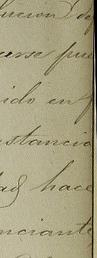 lucion de
carse pue
ido en f
stancia
dad hace
nciante,